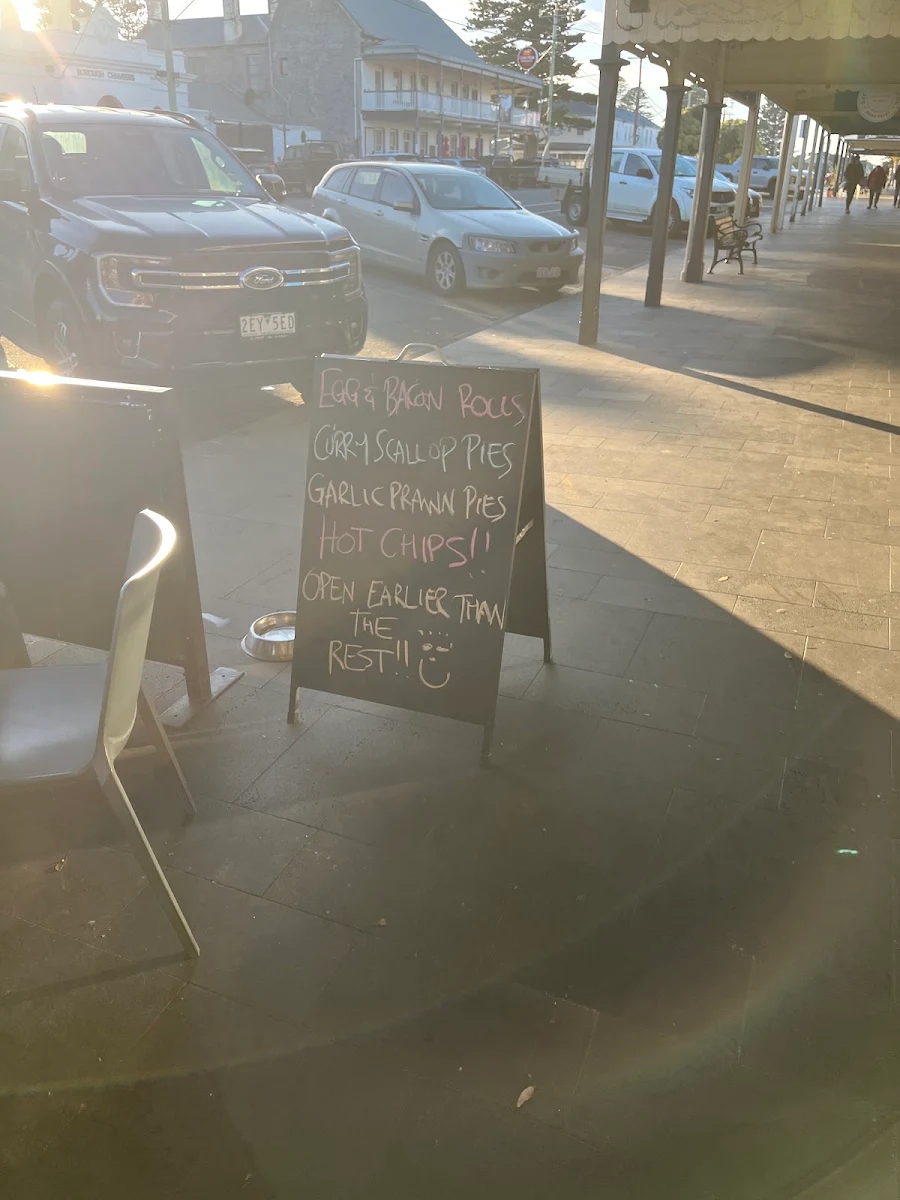 BOROUGH CHAMBERS
Ford
2EY·5ED
EGG & BACON ROLLS
CURRY SCALLOP PIES
GARLIC PRAWN PIES
HOT CHIPS!!
OPEN EARLIER THAN
THE
REST!!